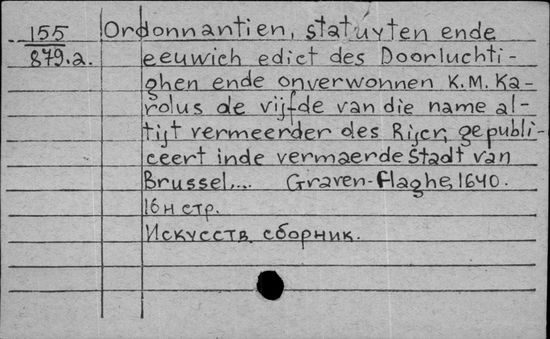 155 Ordonnantien, statuyten ende
879.a. eeuwich edict des Doorluchti-
ghen ende onverwonnen K.M. Ka-
rolus de vijfde van die name al-
tijt vermeerder des Rijcr, gepubli-
ceert inde vermaerde stadt van
Brussel,... Graven-Haghe, 1640.
16н стр.
Искусств. сборник.